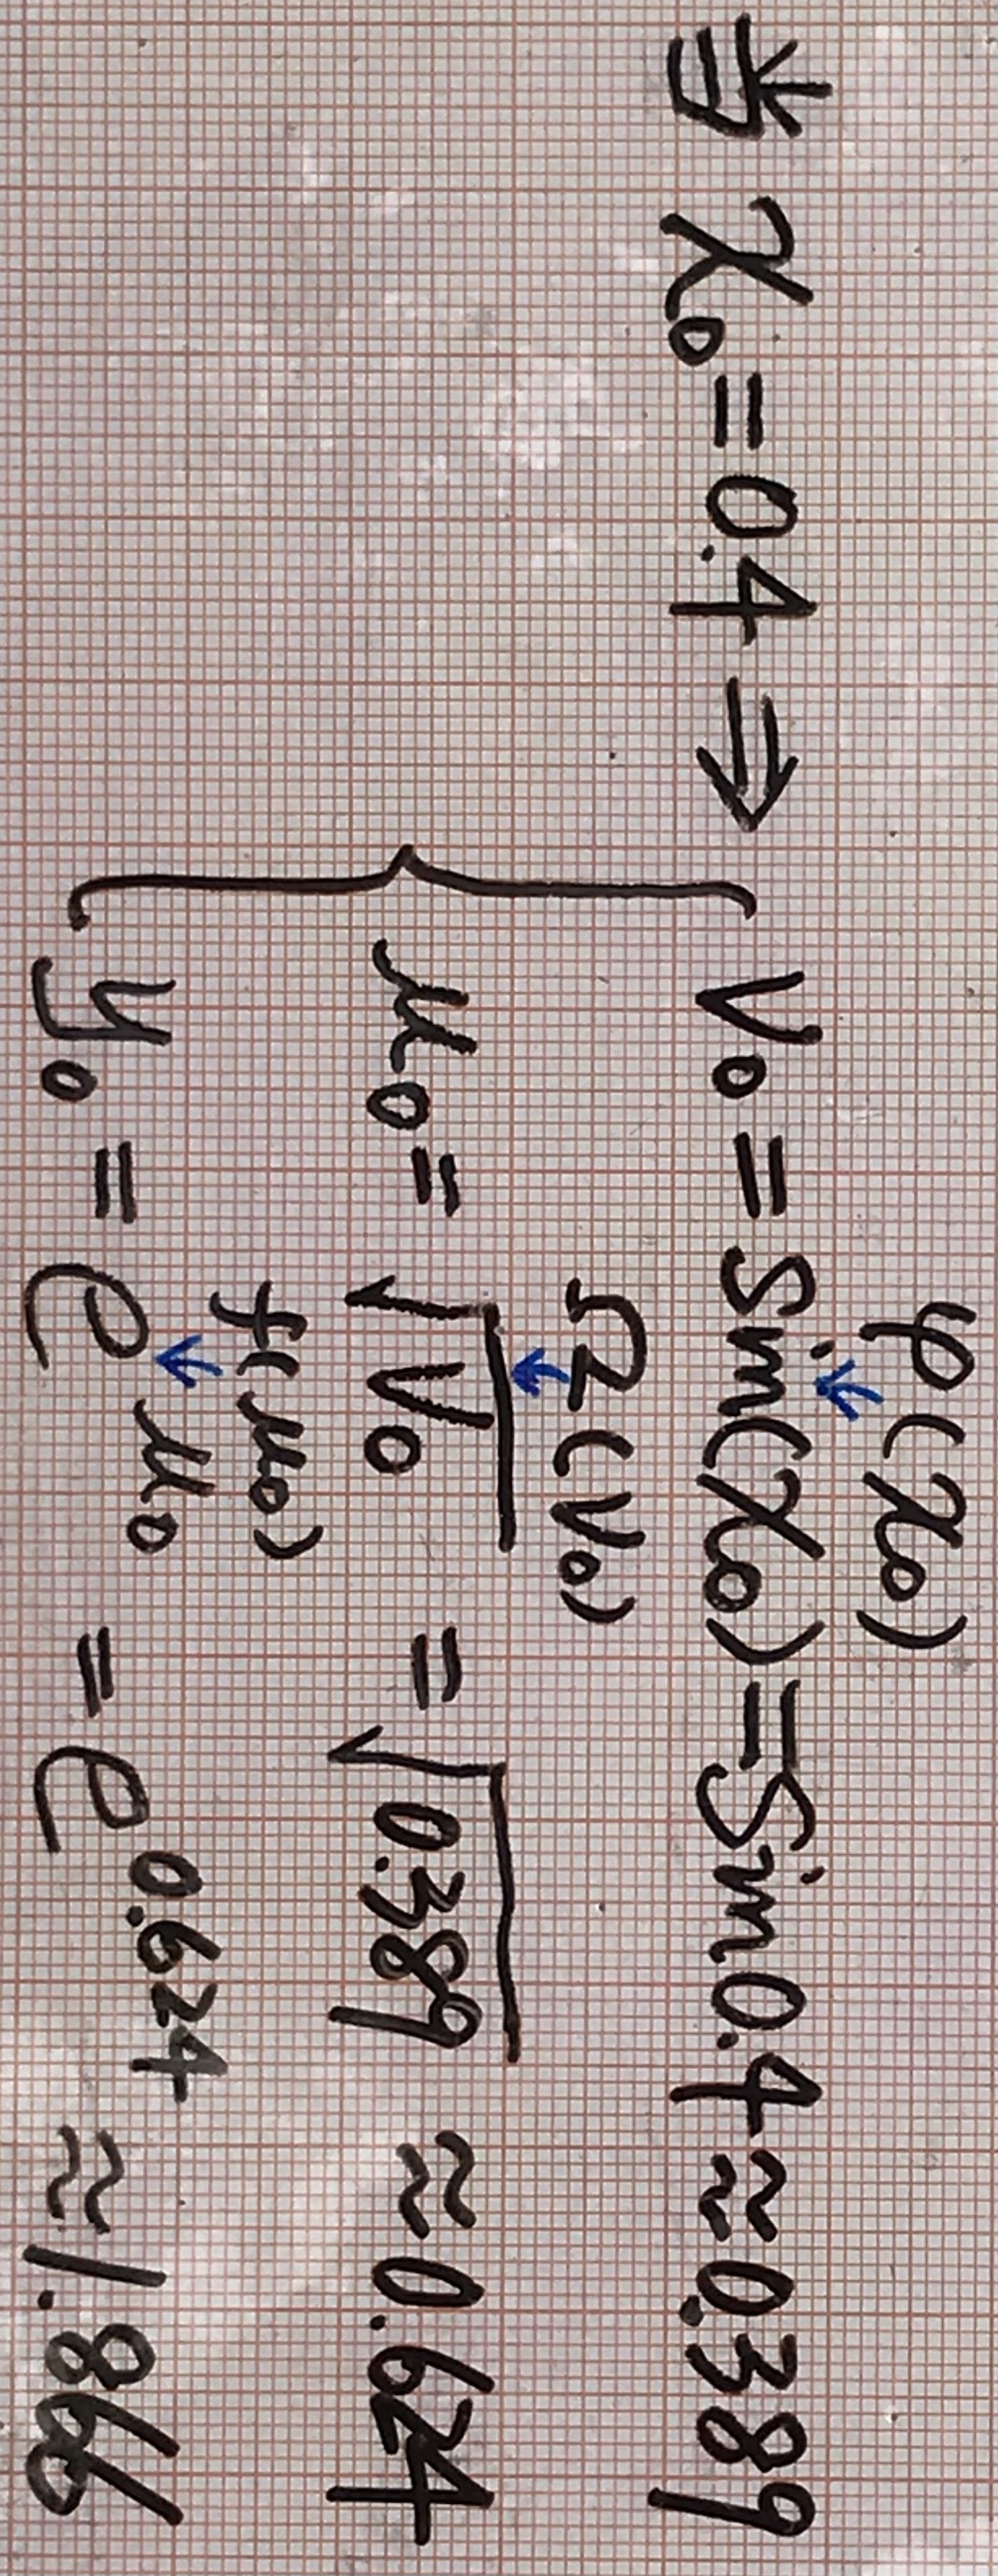 φ(x₀)
↓
当 x₀=0.4 ⇒ { V₀ = Sin(x₀)=Sin0.4≈0.389
Ω(V₀)
↓
μ₀= √V₀ = √0.389 ≈0.624
f(μ₀)
↓
y₀ = e^μ₀ = e^0.624 ≈1.866